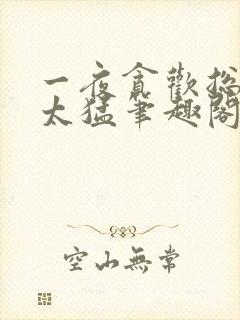 一夜贪歡总
太猛笔趣阁
空山無常